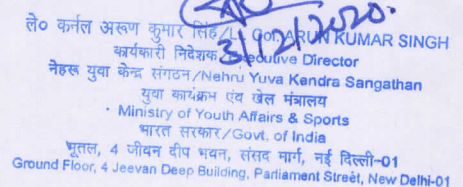 3/12/2020
ले० कर्नल अरूण कुमार सिंह/Lt. Col. ARUN KUMAR SINGH
कार्यकारी निदेशक/Executive Director
नेहरू युवा केन्द्र संगठन/Nehru Yuva Kendra Sangathan
युवा कार्यक्रम एंव खेल मंत्रालय
Ministry of Youth Affairs & Sports
भारत सरकार/Govt. of India
भूतल, 4 जीवन दीप भवन, संसद मार्ग, नई दिल्ली-01
Ground Floor, 4 Jeevan Deep Building, Parliament Street, New Delhi-01